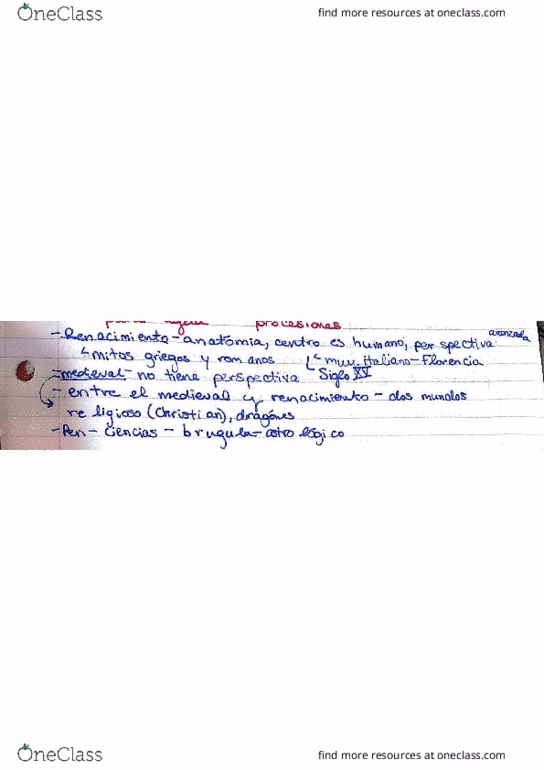 OneClass find more resources at oneclass.com
procesiones
avanzada
-Renacimiento-anatomia, centro es humano, perspectiva
↳mitos griegos y romanos muy Italiano-Florencia
-medieval-no tiene perspectiva Siglo XV
-entre el medieval y renacimiento-dos mundos
religioso (Christian), dragónes
-Ren-Ciencias-brugula-astrológico
OneClass find more resources at oneclass.com